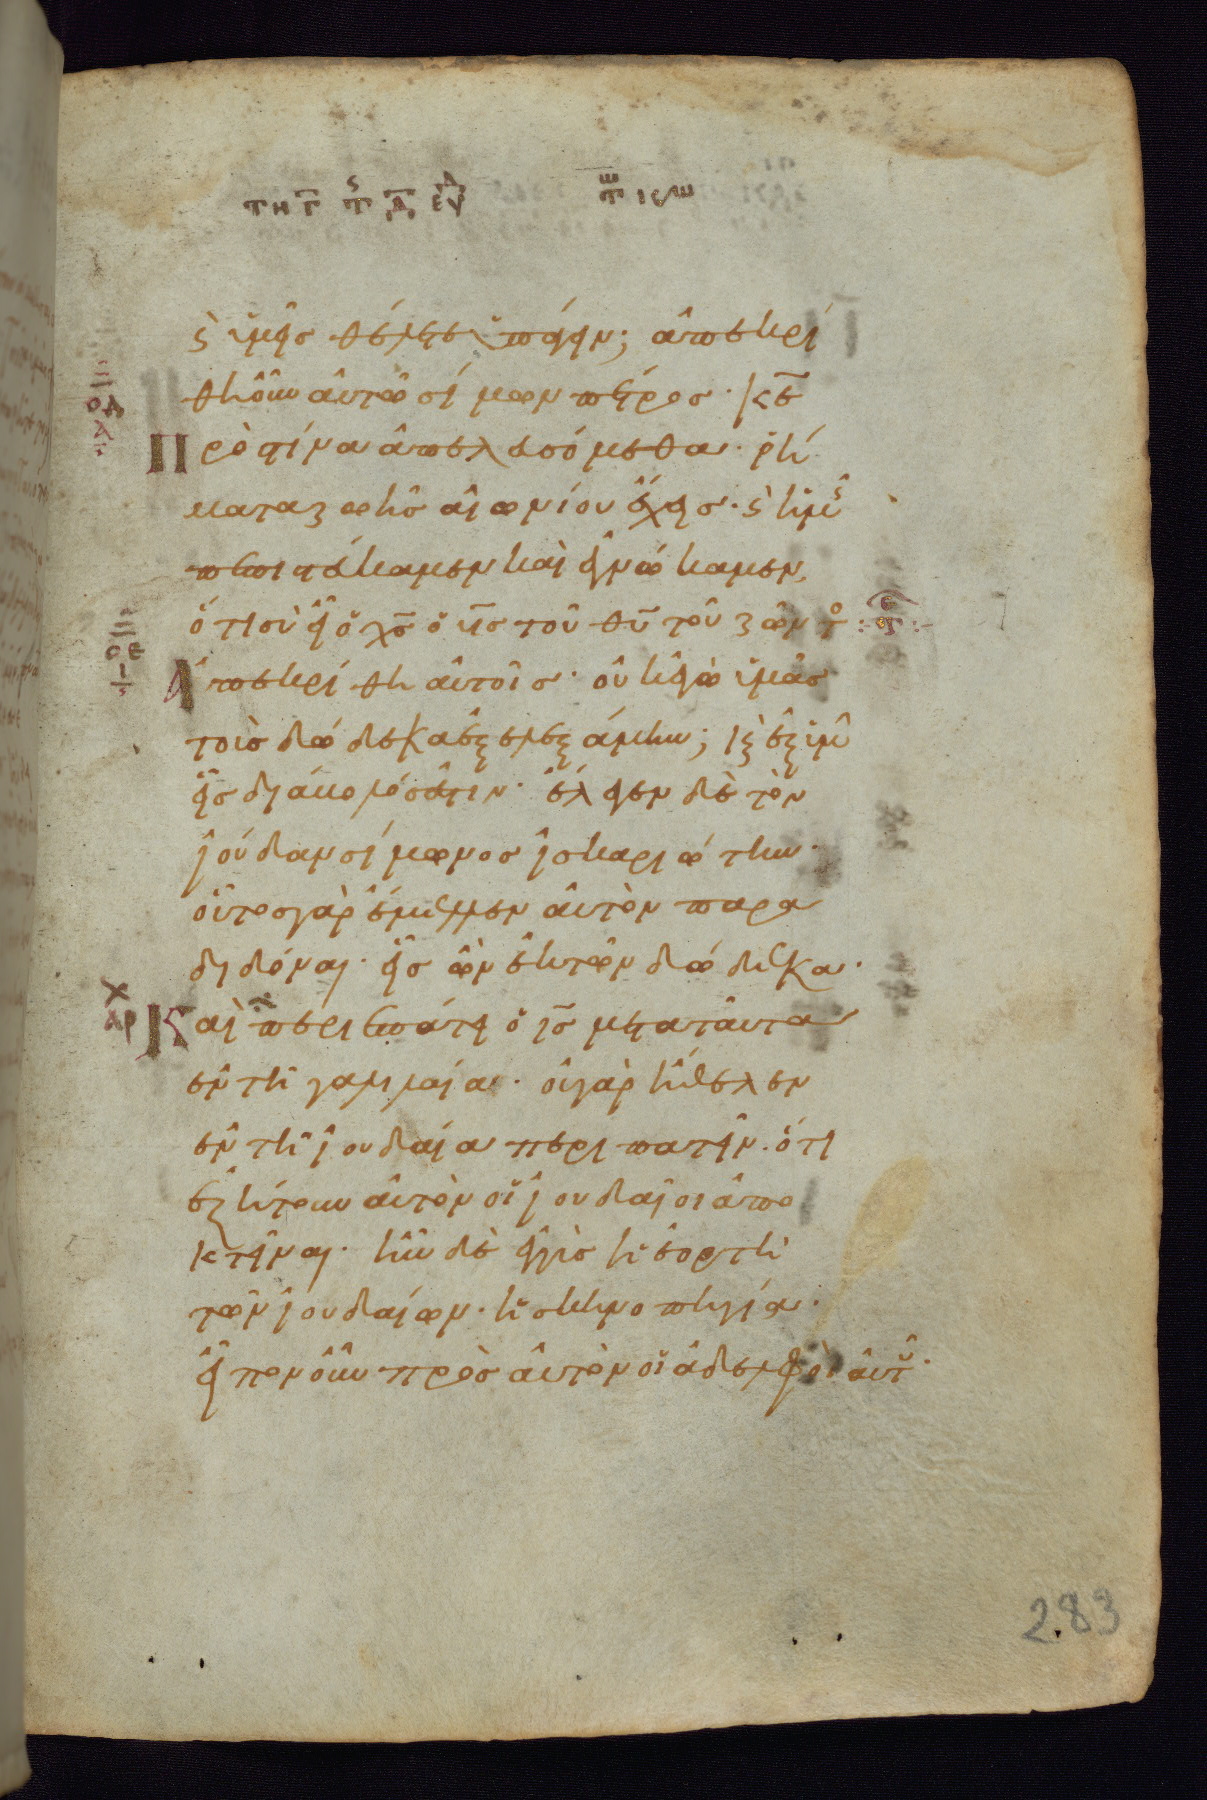 τη γ ϛ τ δ εὐδ τ ιςω
ϛ̀ ὑμεῖσ θέλετε ὑπάγειν; ἀπεκρί
θη οὖν αὐτῶ σίμων πέτροσ· κε̄
πρὸσ τίνα ἀπελευσόμεθα· ῥή
ματα ζωῆσ αἰωνίου ἔχεισ· ϛ̀ ἡμεῖς
πεπιστεύκαμεν καὶ ἐγνώκαμεν,
ὅτι σὺ εἶ ὁ χ̄σ ὁ ῡσ τοῦ θ̄υ τοῦ ζῶντο
ἀπεκρίθη αὐτοῖσ· οὐκ ἐγὼ ὑμᾶσ
τοὺσ δώδεκα ἐξελεξάμην; κ̀ ἐξ ὑμῶ
εἷσ διάβολόσ ἐστιν· ἔλεγεν δὲ τὸν
ἰούδαν σίμωνοσ ἰσκαριώτην·
οὗτοσ γὰρ ἔμελλεν αὐτὸν παρα
διδόναι· εἷσ ὢν ἐκ τῶν δώδεκα·
καὶ περιεπάτει ὁ ῑσ μετὰ ταῦτα
ἐν τῆ γαλιλαία· οὐ γὰρ ἤθελεν
ἐν τῆ ἰουδαία περιπατεῖν· ὅτι
ἐζήτουν αὐτὸν οἱ ἰουδαῖοι ἀπο
κτεῖναι· ἦν δὲ ἐγγὺσ ἡ ἑορτὴ
τῶν ἰουδαίων· ἡ σκηνοπηγία·
εἶπον οὖν πρὸσ αὐτὸν οἱ ἀδελφοὶ αὐτοῦ·
283